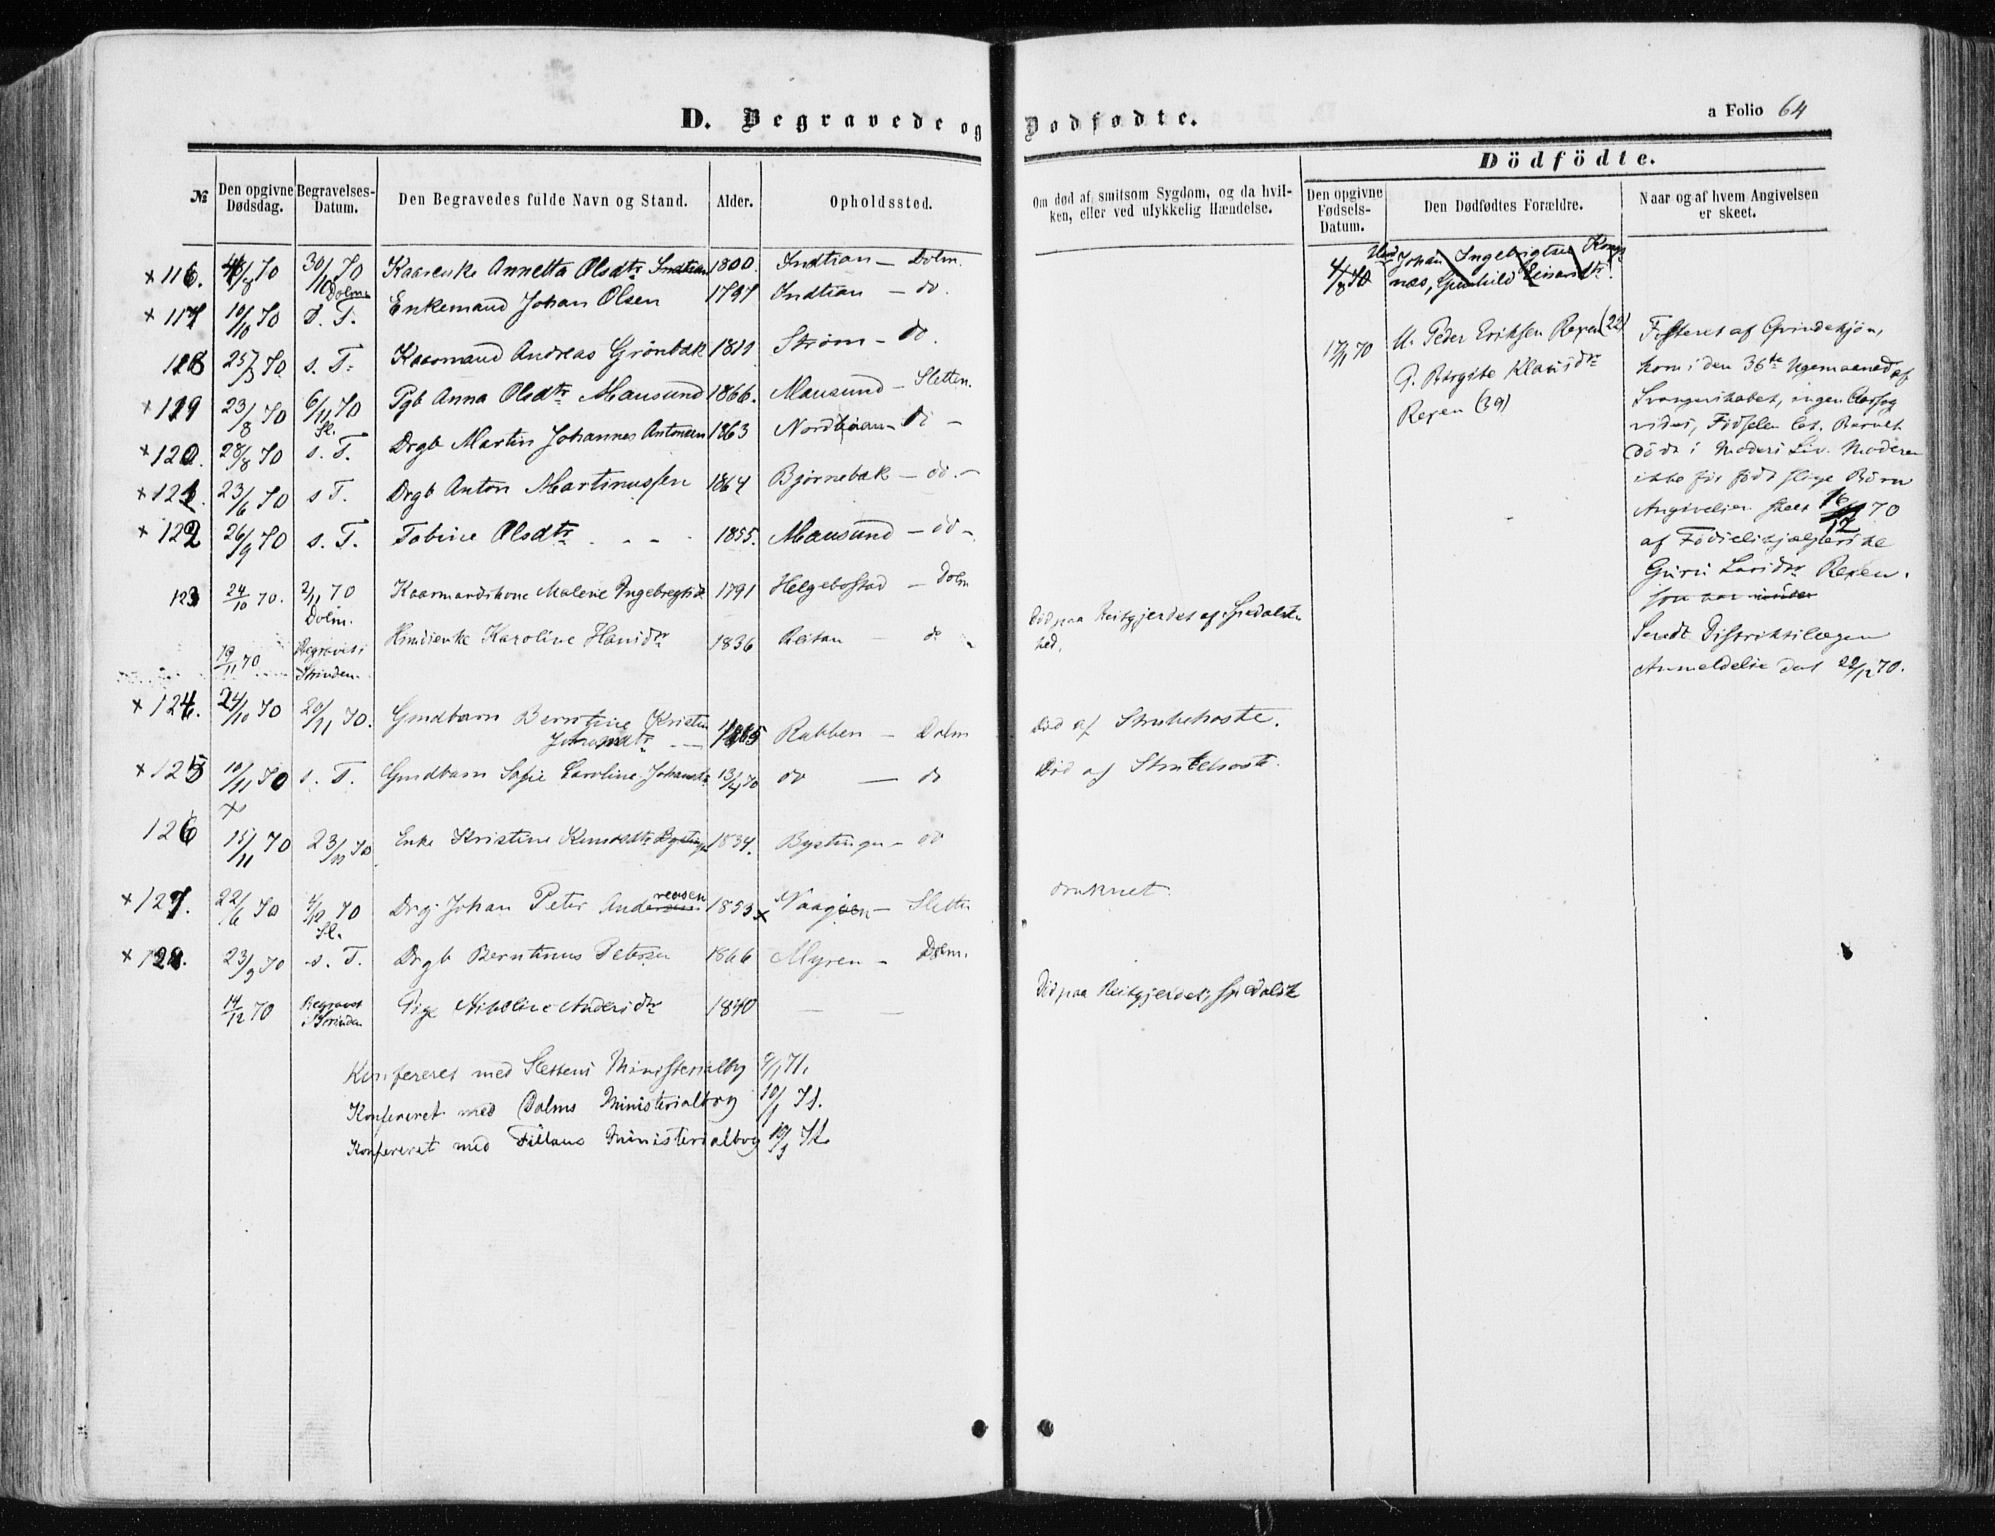 D. Begravede og Dødfødte.
a Folio 64
Dödfödte.
№
Den opgivne Dødsdag.
Begravelses-Datum.
Den Begravedes fulde Navn og Stand.
Alder.
Opholdssted.
Om død af smitsom Sygdom, og da hvil-
ken, eller ved ulykkelig Hændelse.
Den opgivne Fødsels-Datum.
Den Dødfødtes Forældre.
Naar og af hvem Angivelsen er skeet.
× 116 /8 70 30/10 70 Dolm Kaarenke Annetta Olsdtr Indtian 1800. Indtian – Dolm.
× 117 10/10 70 s. T. Enkemand Johan Olsen 1797 Indtian – do.
118 25/5 70 s. T. Kaarmand Andreas Grönbak 1811 Strøm – do.
× 119 23/8 70 6/11 70 Sl. Pgb Anna Olsdtr Mausund 1866. Mausund – Sletten.
× 120. 28/8 70 s. T. Drgb Martin Johannes Antonsen 1863 – do –
× 121 23/6 70 s T. Drgb Anton Martinussen 1864 Bjørnebak – do. –
× 122 26/9 70 s. T. Tobine Olsdtr 1855. Mausund – do –
123 24/10 70. 2/11 70 Dolm. Kaarmandskone Malene Ingebregtsd. 1791 Helgebostad – Dolm
19/11 70 Begravet i Strinden Karoline Hansdtr 1836 Reitan – do
Död paa Reitgjerdet af Spedalsk-
hed.
× 124. 24/10 70 20/11 70. Gmdbarn Berntine Kristin
1865 Rabben – Dolm Död af Strubehoste.
× 125 10/11 70 s. T. Gmdbarn Sofie Caroline Johansdtr 13/4 70 do – do Död af Strubehoste.
126 15/11 70 23/11 70 Enke Kristine Bystingen 1834. Bystingen – do
× 127. 22/6 70 4/12 70 Sl. Drg. Johan Peter Andersen reasen 1853 × Vaagöen – Sletten druknet.
× 128. 23/9 70 s. T. Drgb Berntinus Petersen 1866 Myren – Dolm.
14/12 70 Begravet i Strinden Pige Nikoline Andersdtr 1840 – –
Död paa Reitgjerdet, Spedalsk
Konfereret med Slettens Ministerialbog 9/1 71.
Konfereret med Dolms Ministerialbog 10/1 71.
Konfereret med Fillans Ministerialbog
4/8 70 Johan Ingebrigtsen Kongs
næs, Gunhild
17/11 70 U. Peder Eriksen Rexen (22)
P. Birgitte
Rexen (39)
Fosteret af
kom i den 36te Ugemaaned af
Svangerskabet, ingen
Fødselen Barnet
döde i Moders Liv. Moderen
ikke før födt slige Börn
Angivelsen skeet 16/12 70
af Födselshjælperske
Guru Larsdtr Rexen.
Sendt Distriktslægen
Anmeldelse det 22/12 70.